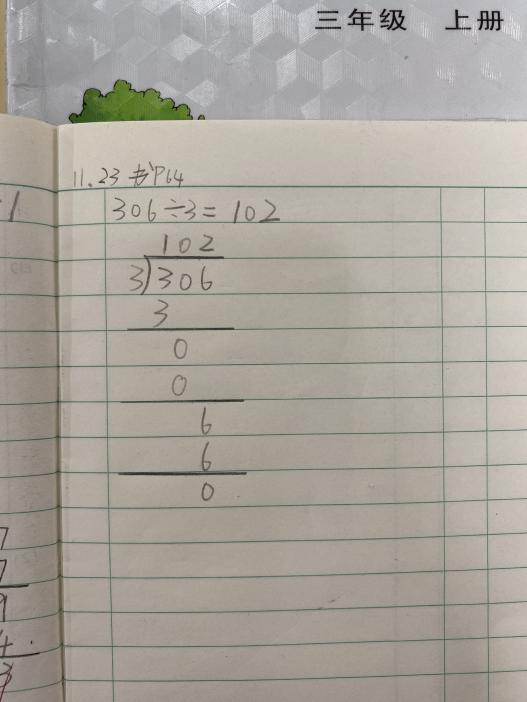 三年级 上册
11.23 书P64
306÷3=102
102
3)306
3
0
0
6
6
0
1
7
7
9
4.